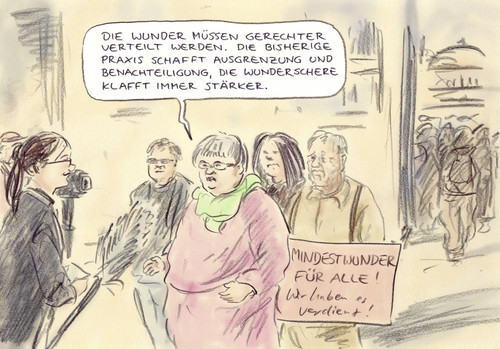 DIE WUNDER MÜSSEN GERECHTER
VERTEILT WERDEN. DIE BISHERIGE
PRAXIS SCHAFFT AUSGRENZUNG UND
BENACHTEILIGUNG, DIE WUNDERSCHERE
KLAFFT IMMER STÄRKER.
MINDESTWUNDER
FÜR ALLE!
Wir haben es
verdient!